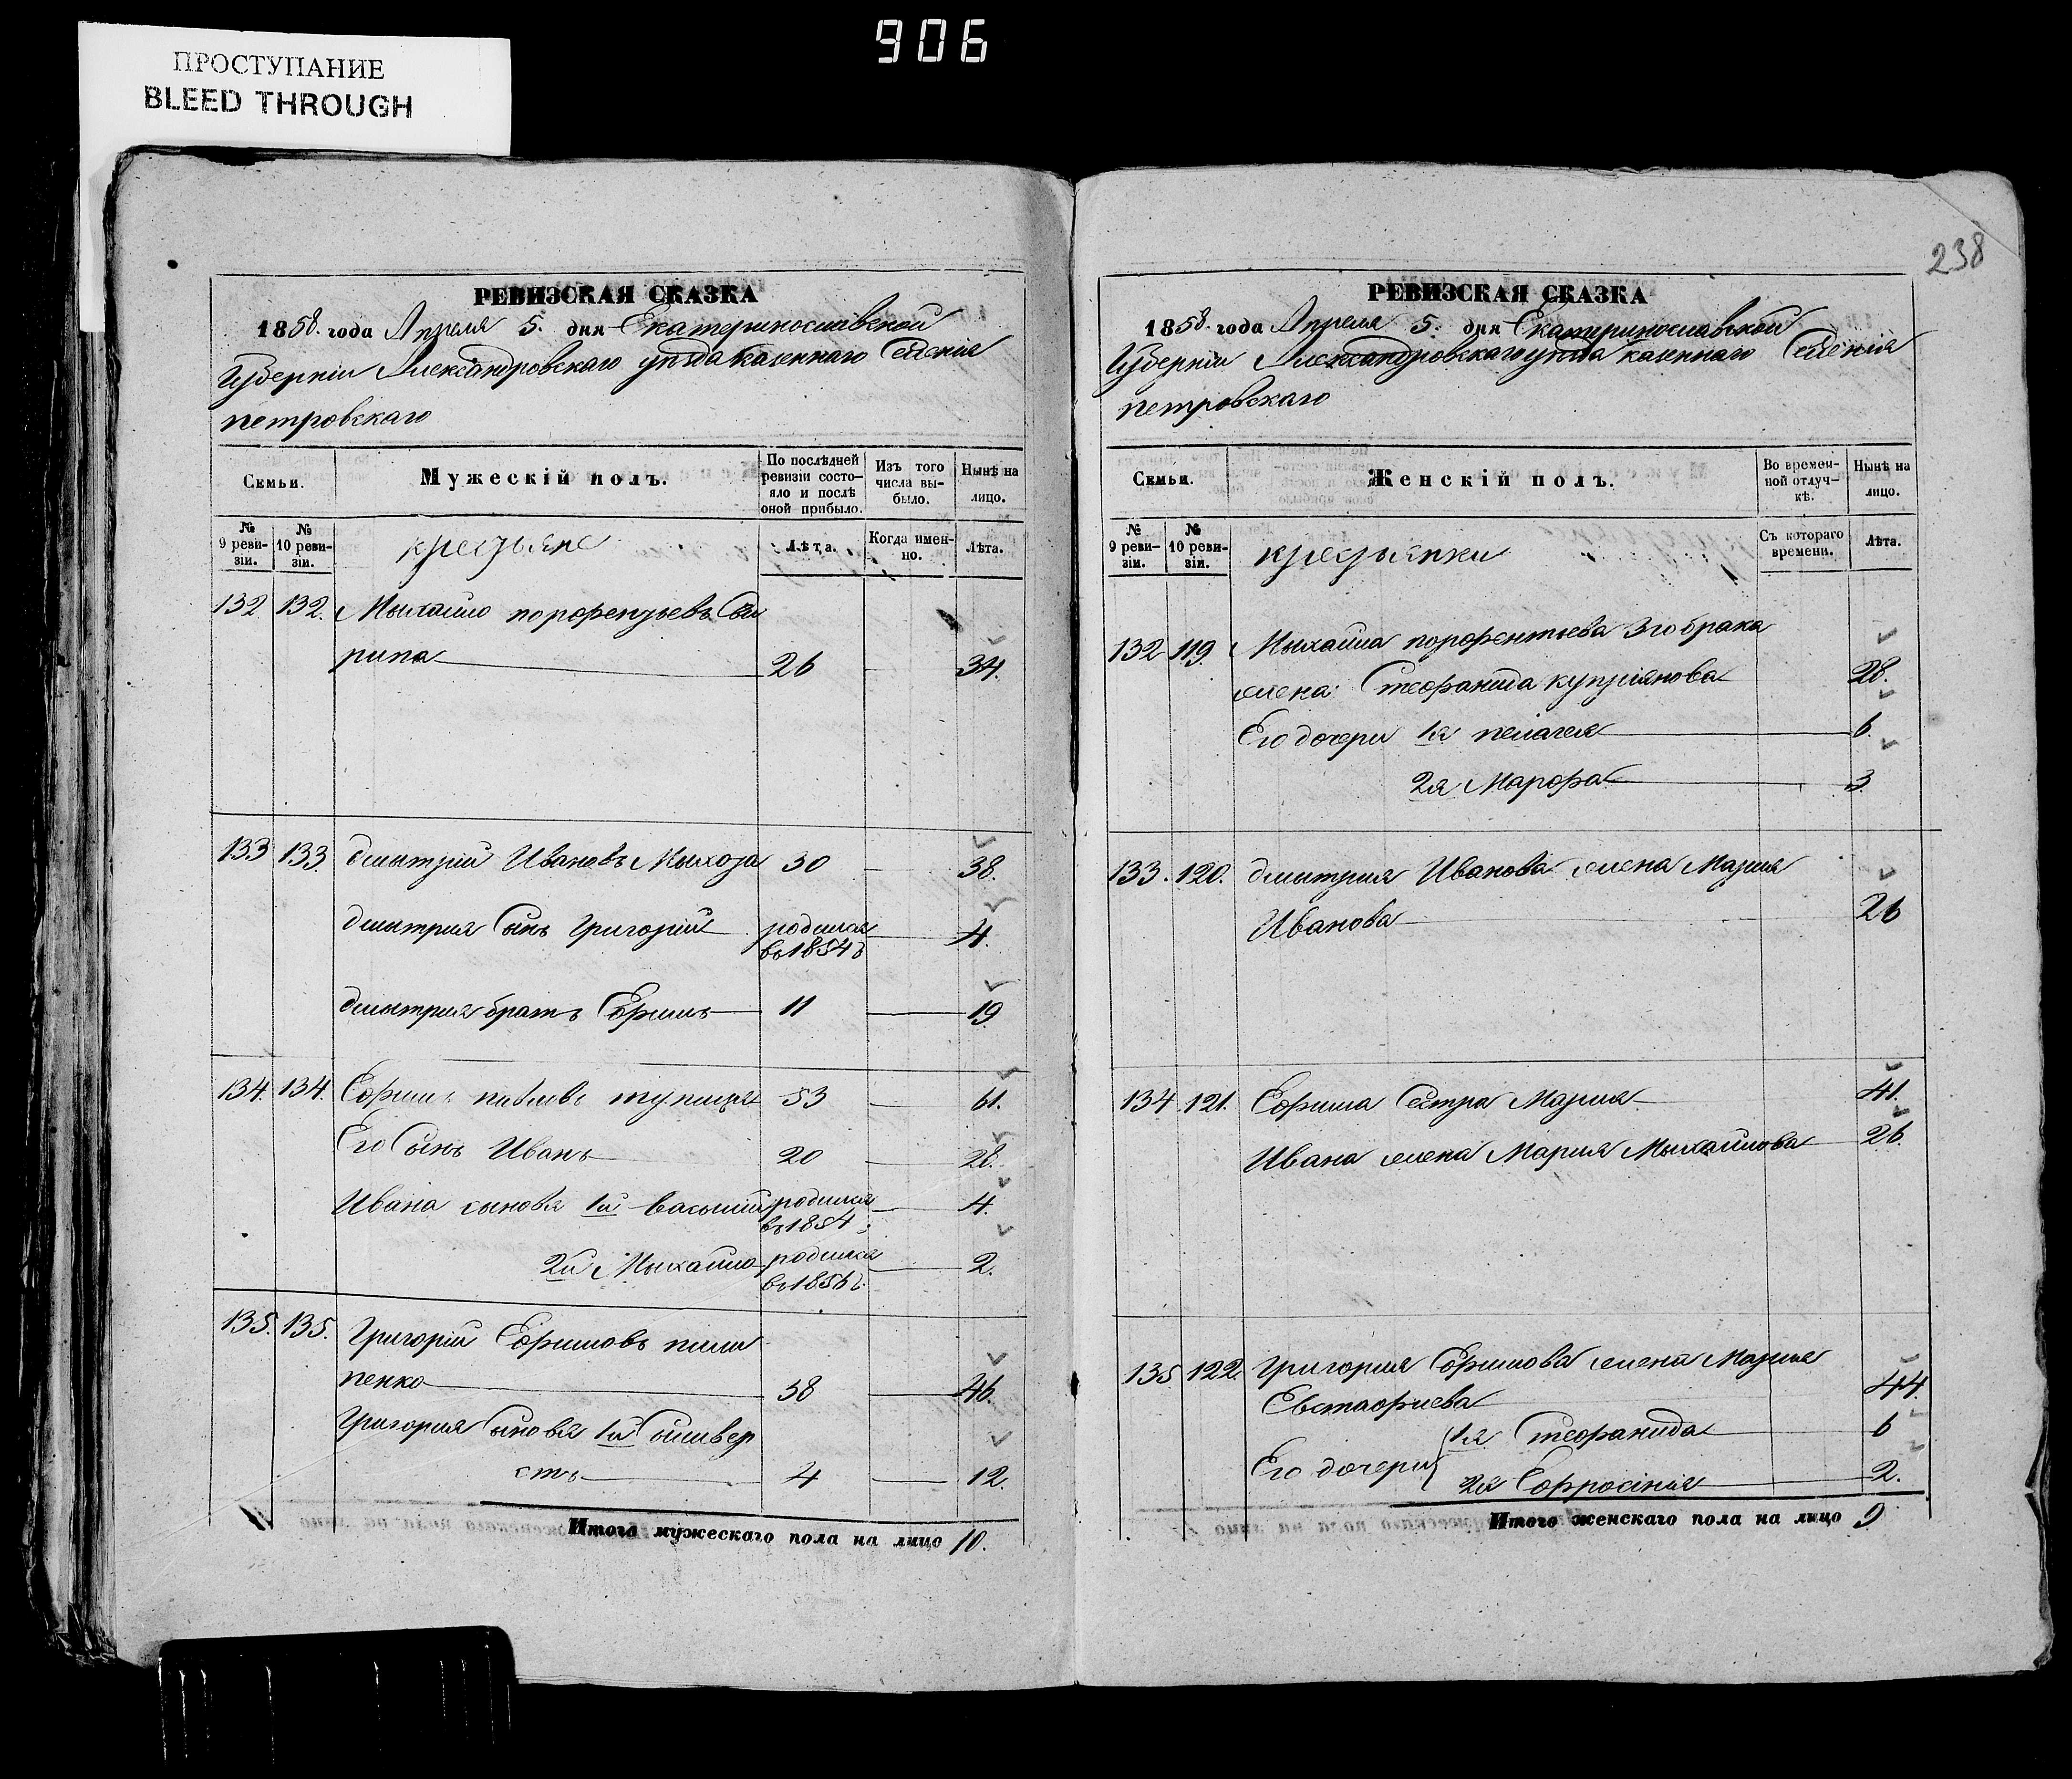 906
ПРОСТУПАНИЕ
BLEED THROUGH
РЕВИЗСКАЯ СКАЗКА
1858. года Апреля 5. дня Екатеринославской
Губерніи Александровскаго уѣзда казеннаго Селенія
петровскаго
Семьи.
Мужескій полъ.
По послѣдней ревизіи состояло и послѣ оной прибыло.
Изъ того числа выбыло.
Нынѣ на лицо.
№ 9 ревизіи.
№ 10 ревизіи.
крестьяне
Лѣта.
Когда именно.
Лѣта.
132 132. Мыхайло порфентьевъ
рипа 26 34.
133 133. дмытрій Ивановъ 30 38.
дмытрия Сынъ Григорій родился в 1854 г 4.
дмытрия братъ Ефимъ 11 19
134. 134. Ефимъ павловъ 53 61.
Его Сынъ Иванъ 20 28.
Ивана сыновья 1й Васылий родился в 1854 4.
2й Мыхайло родился в 1856 г. 2.
135. 135. Григорій Ефимовъ пили
пенко 38 46.
Григория Сыновья 1й Сыливер
стъ 4 12.
Итого мужескаго пола на лицо 10.
238
РЕВИЗСКАЯ СКАЗКА
1858. года Апреля 5. дня Екатеринославской
Губерніи Александровскаго уѣзда казеннаго Селенія
петровскаго
Семьи.
Женскій полъ.
Во временной отлучкѣ.
Нынѣ на лицо.
№ 9 ревизіи.
№ 10 ревизіи.
крестьянки
Съ котораго времени.
Лѣта.
132 119. Мыхайла порфентьева 3го брака
жена Стефанида купріянова 28.
Его дочери 1я пелагея 6.
2я Марфа 3
133. 120. дмытрия Иванова жена Мария
Иванова 26
134. 121. Ефима Сестра Мария 41.
Ивана жена Мария Мыхайлова 26.
135 122. Григория Ефимова жена Мария
Евстафиева 44.
Его дочери 1я Стефанида 6
2я Ефросінія 2.
Итого женскаго пола на лицо 9